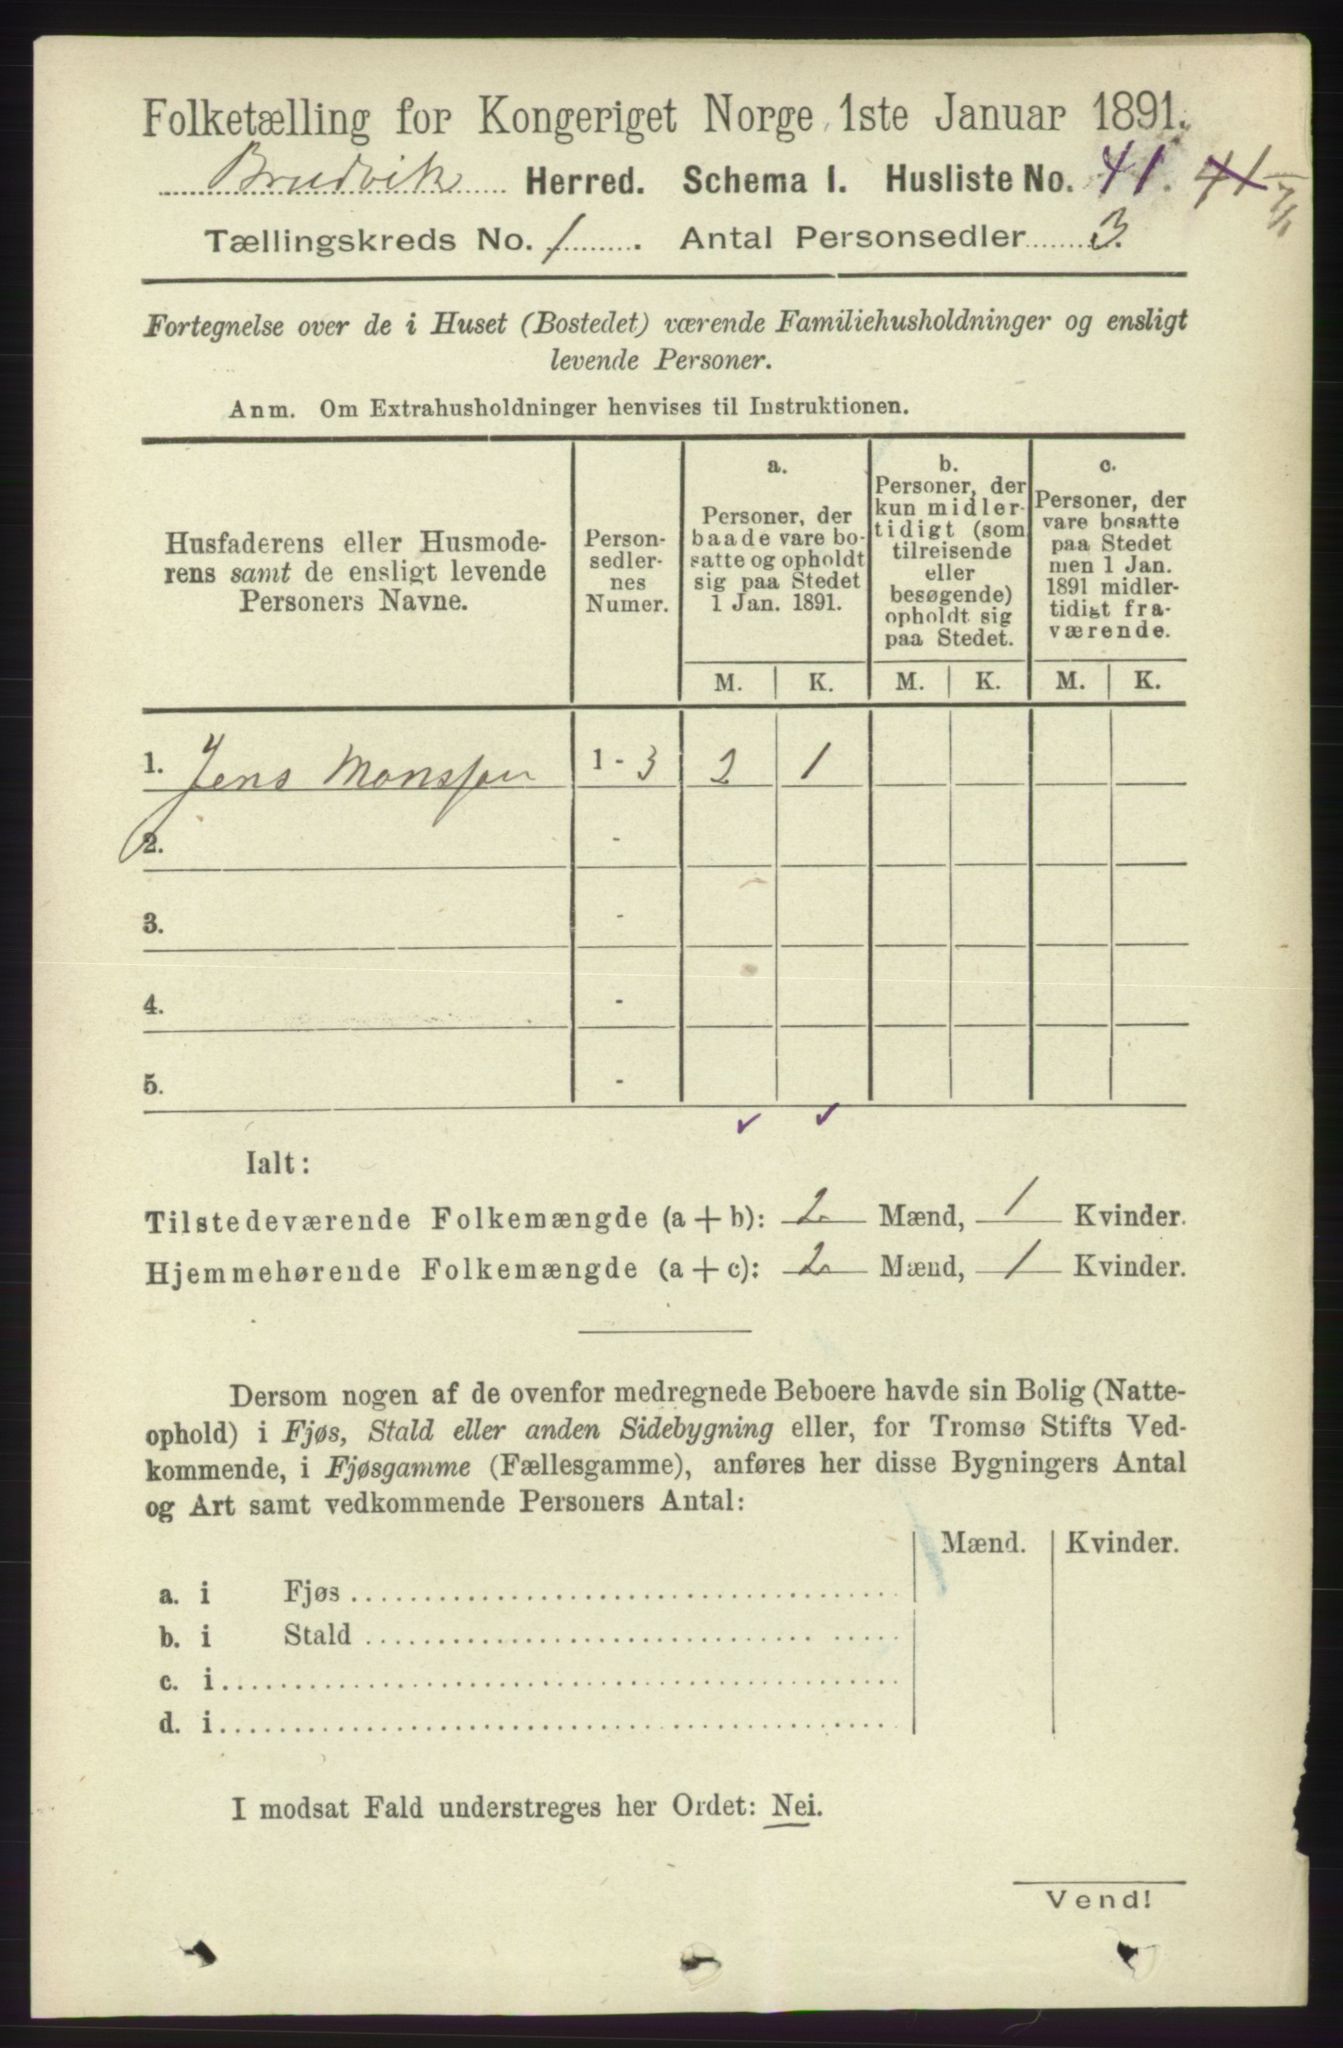 Folketælling for Kongeriget Norge 1ste Januar 1891.
Bruvik Herred. Schema I. Husliste No. 41. 41
Tællingskreds No. 1. Antal Personsedler 3.
Fortegnelse over de i Huset (Bostedet) værende Familiehusholdninger og ensligt
levende Personer.
Anm. Om Extrahusholdninger henvises til Instruktionen.
Husfaderens eller Husmode-
rens samt de ensligt levende
Personers Navne.
Person-
sedler-
nes
Numer.
a.
Personer, der
baade vare bo-
satte og opholdt
sig paa Stedet
1 Jan. 1891.
b.
Personer, der
kun midler-
tidigt (som
tilreisende
eller
besøgende)
opholdt sig
paa Stedet.
c.
Personer, der
vare bosatte
paa Stedet
men 1 Jan.
1891 midler-
tidigt fra-
værende.
M. K. M. K. M. K.
1. Jens Monssen 1 - 3 2 1
2. -
3. -
4. -
5. -
Ialt:
Tilstedeværende Folkemængde (a + b): 2 Mænd, 1 Kvinder.
Hjemmehørende Folkemængde (a + c): 2 Mænd, 1 Kvinder.
Dersom nogen af de ovenfor medregnede Beboere havde sin Bolig (Natte-
ophold) i Fjøs, Stald eller anden Sidebygning eller, for Tromsø Stifts Ved-
kommende, i Fjøsgamme (Fællesgamme), anføres her disse Bygningers Antal
og Art samt vedkommende Personers Antal:
Mænd. Kvinder.
a. i Fjøs
b. i Stald
c. i
d. i
I modsat Fald understreges her Ordet: Nei.
Vend!